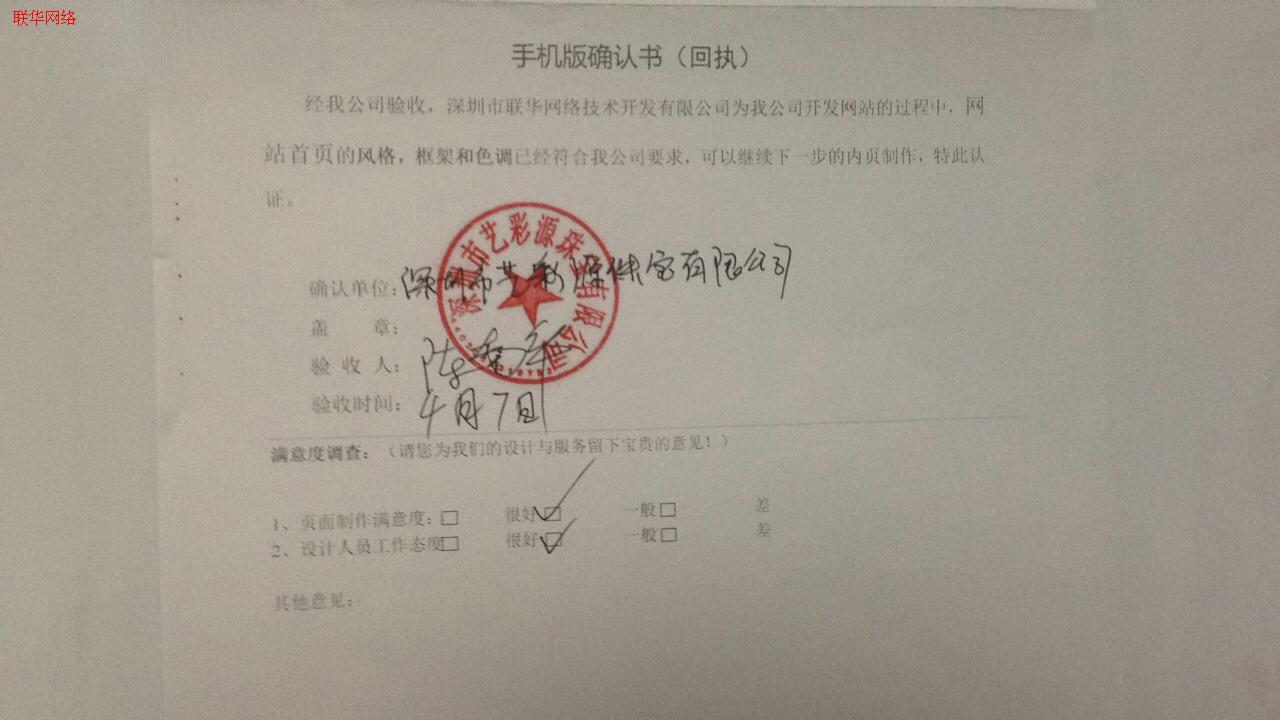 联华网络
手机版确认书（回执）
经我公司验收，深圳市联华网络技术开发有限公司为我公司开发网站的过程中，网
站首页的风格，框架和色调已经符合我公司要求，可以继续下一步的内页制作，特此认
证。
深圳市艺彩源珠宝有限公司
确认单位：深圳市艺彩源珠宝有限公司
盖 章：
验 收 人：陈
验收时间：4月7日
满意度调查：（请您为我们的设计与服务留下宝贵的意见！）
1、页面制作满意度：□ 很好□ 一般□ 差
2、设计人员工作态度□ 很好□ 一般□ 差
其他意见：